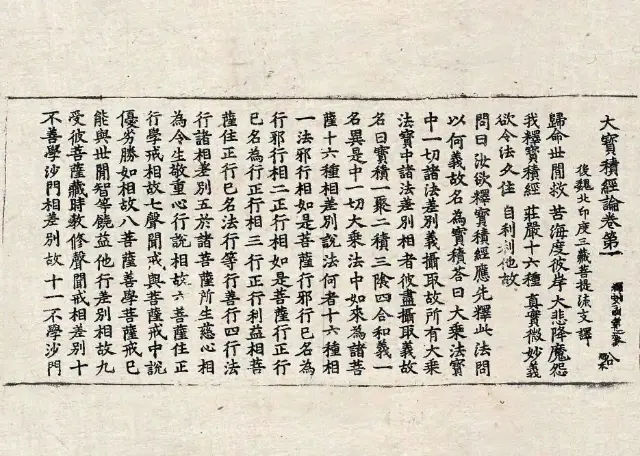 大寶積經論卷第一
後魏北印度三藏菩提流支譯
歸命世間救 苦海度彼岸 大悲降魔怨
我釋寶積經 莊嚴十六種 真實微妙義
欲令法久住 自利利他故
問曰汝欲釋寶積經應先釋此法問
以何義故名為寶積答曰大乘法寶
中一切諸法差別義攝取故所有大乘
法寶中諸法差別相者彼盡攝取義故
名曰寶積一聚二積三陰四合和義一
名異是中一切大乘法中如來為諸菩
薩十六種相差別說法何者十六種相
一法邪行相如是菩薩行邪行已名為
行邪行相二正行相如是菩薩行正行
已名為行正行相三行正行利益相菩
薩住正行已名法行等行善行四行法
行諸相差別五於諸菩薩所生慈心相
為令生敬重心行說相故六菩薩住正
行學戒相故七聲聞戒與菩薩戒中說
優劣勝如相故八菩薩善學菩薩戒已
能與世間智等饒益他行差別相故九
受彼菩薩藏時教修聲聞戒相差別十
不善學沙門相差別故十一不學沙門